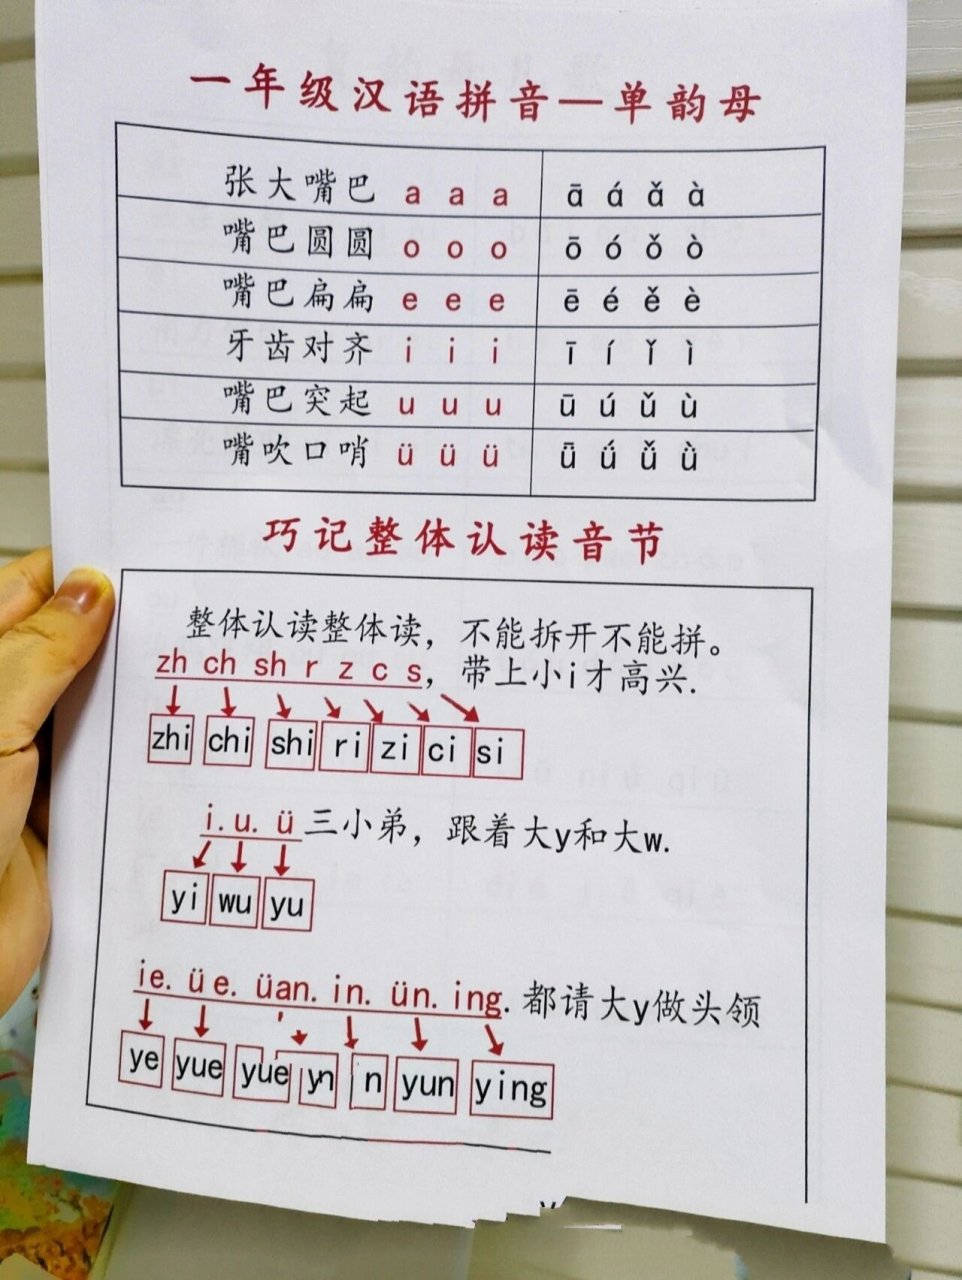 一年级汉语拼音—单韵母
张大嘴巴 a a a ā á ǎ à
嘴巴圆圆 o o o ō ó ǒ ò
嘴巴扁扁 e e e ē é ě è
牙齿对齐 i i i ī í ǐ ì
嘴巴突起 u u u ū ú ǔ ù
嘴吹口哨 ü ü ü ǖ ǘ ǚ ǜ
巧记整体认读音节
整体认读整体读，不能拆开不能拼。
zh ch sh r z c s，带上小i才高兴.
zhi chi shi ri zi ci si
i. u. ü 三小弟，跟着大y和大w.
yi wu yu
ie. üe. üan. in. ün. ing. 都请大y做头领
ye yue yue yn n yun ying